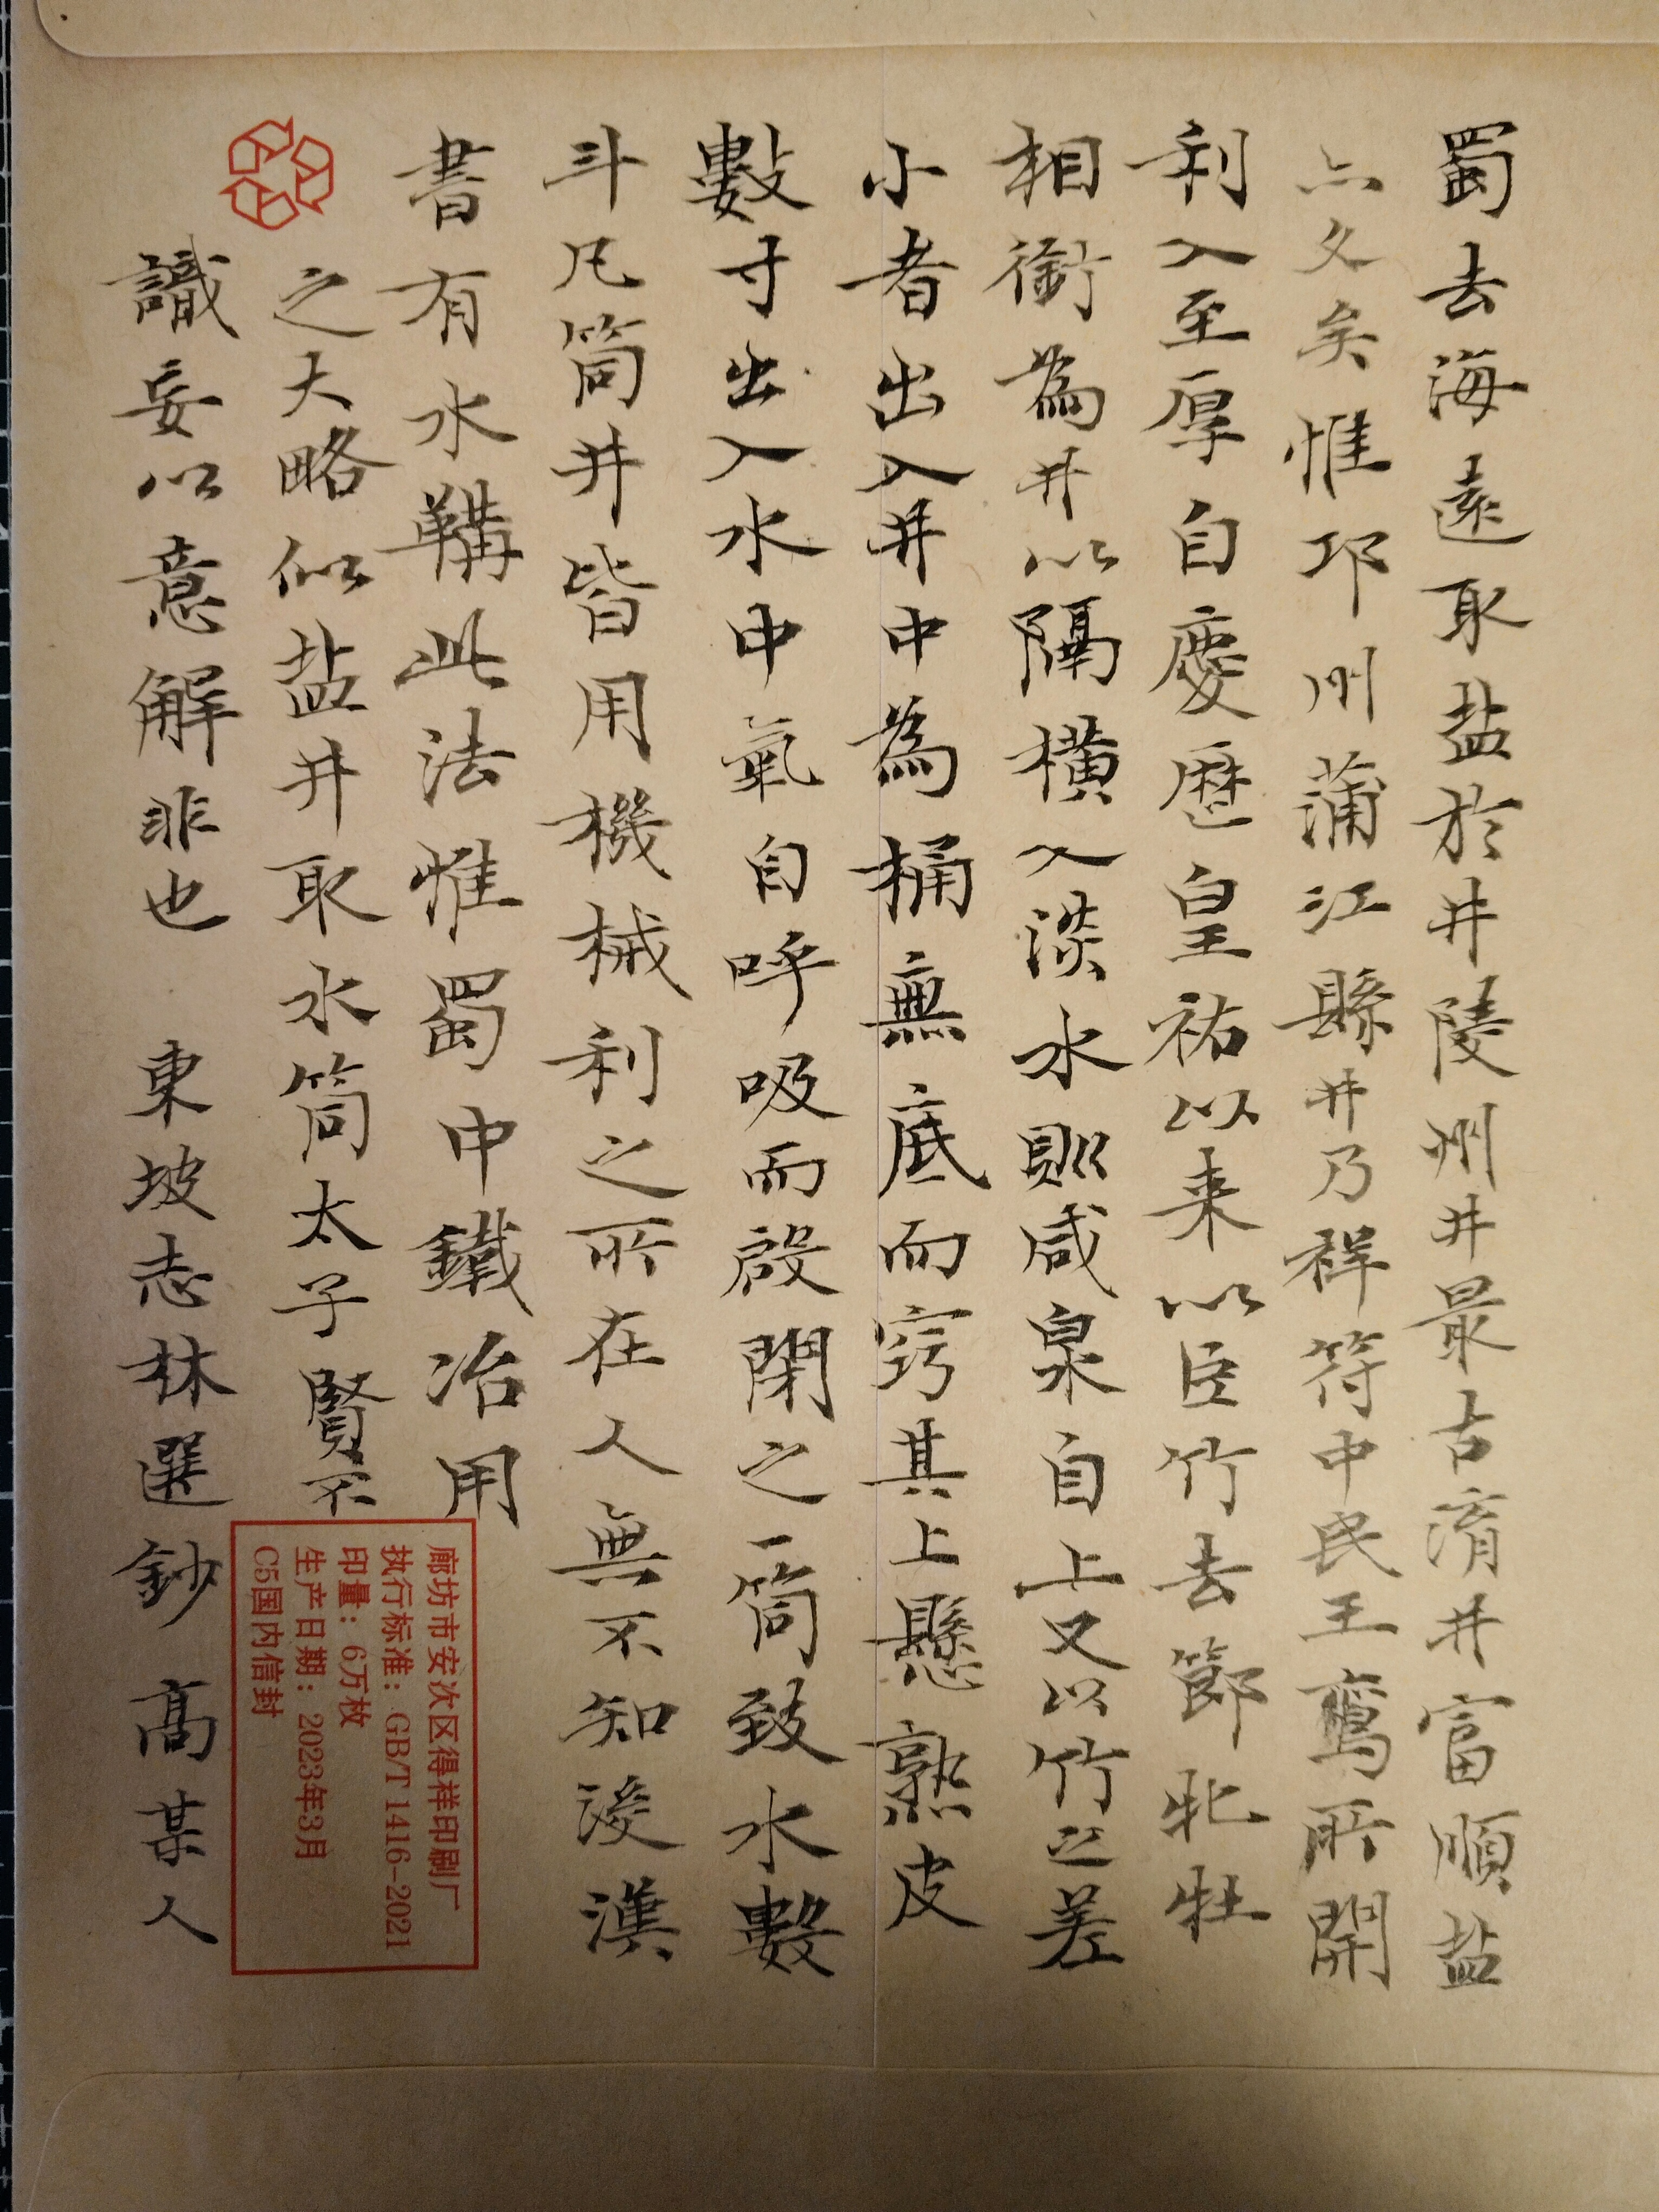 蜀去海遠取盐於井陵州井最古淯井富順盐
亦久矣惟邛州蒲江縣井乃祥符中民王鸾所開
利入至厚自慶歷皇祐以来以臣竹去節牝牡
相銜為井以隔横入淡水則咸泉自上又以竹之差
小者出入井中為桶無底而窍其上懸熟皮
數寸出入水中氣自呼吸而啟閉之一筒致水數
斗凡筒井皆用機械利之所在人無不知後漢
書有水鞲此法惟蜀中鐵冶用
之大略似盐井取水筒太子賢不
識妄以意解非也 東坡志林選鈔 高某人
廊坊市安次区得祥印刷厂
执行标准：GB/T 1416-2021
印量：6万枚
生产日期：2023年3月
C5国内信封